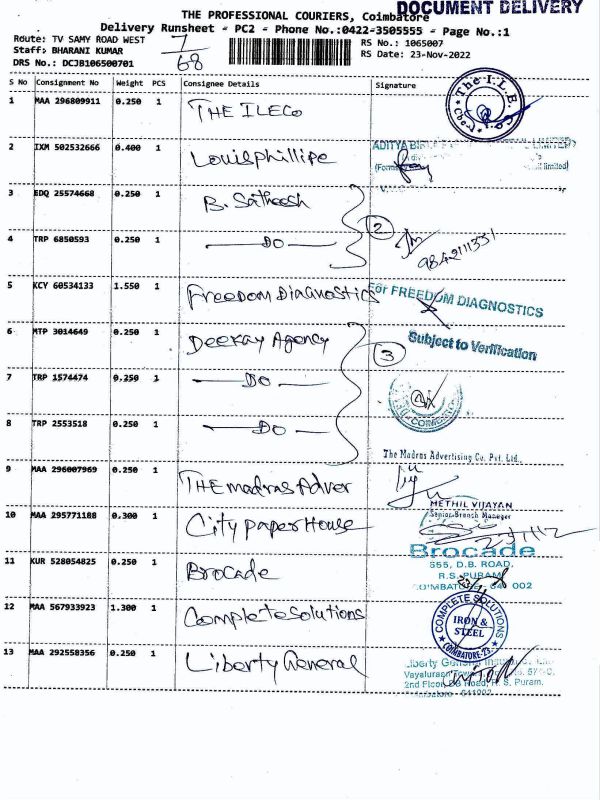 DOCUMENT DELIVERY
THE PROFESSIONAL COURIERS, Coimbatore
Delivery Runsheet - PC2 - Phone No.:0422-3505555 - Page No.:1
Route: TV SAMY ROAD WEST
Staff: BHARANI KUMAR
DRS No.: DCJB106500701
7
68
RS No.: 1065007
RS Date: 23-Nov-2022
S No Consignment No Weight PCS Consignee Details Signature
1 MAA 296809911 0.250 1 THE ILECo
The I.L.E. Co
2 IXM 502532666 0.400 1 Louisphillipe
ADITYA
limited)
3 EDQ 25574668 0.250 1 B. Satheesh
2
4 TRP 6850593 0.250 1 — DO —
9842111331
5 KCY 60534133 1.550 1 Freedom Diagnostics
For FREEDOM DIAGNOSTICS
6 MTP 3014649 0.250 1 Deekay Agency
3
Subject to Verification
7 TRP 1574474 0.250 1 — DO —
8 TRP 2553518 0.250 1 — DO —
The Madras Advertising Co. Pvt. Ltd.
9 MAA 296007969 0.250 1 THE madras Adver
METHIL VIJAYAN
Senior Branch Manager
10 MAA 295771188 0.300 1 City paper House
23/11/2
Brocade
555, D.B. ROAD,
R.S. PURAM
COIMBATORE - 641 002
11 KUR 528054825 0.250 1 Brocade
12 MAA 567933923 1.300 1 Complete Solutions
COMPLETE SOLUTIONS
IRON &
STEEL
COIMBATORE-23
13 MAA 292558356 0.250 1 Liberty General
Liberty General
2nd Floor, DB Road, R. S. Puram.
Coimbatore - 641002